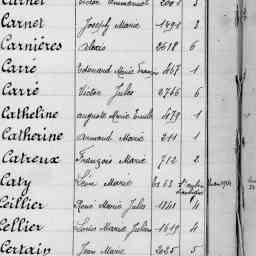 Carnet Victor Emmanuel
Carnet Joseph Marie 1491 3
Carnières Alexis 2618 6
Carré Edouard Marie François 467 1
Carré Victor Jules 2766 6
Catheline Auguste Marie Emile 479 1
Catherine Armand Marie 211 1
Catreux François Marie 712 2
Caty Léon Marie
Ceillier René Marie Jules 1841 4
Cellier Louis Marie Julien 1619 4
Certain Jean Marie 2025 5